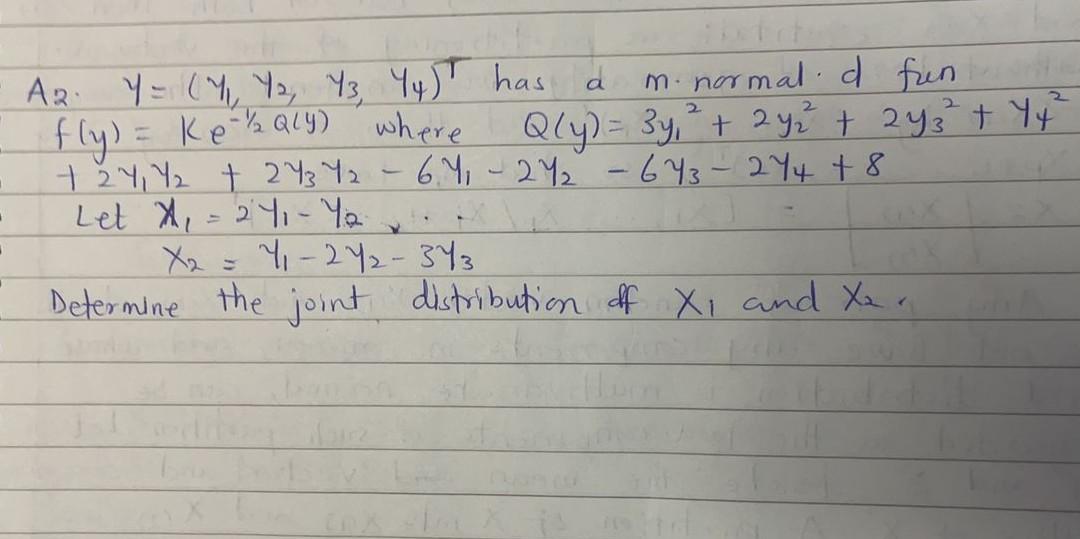 A2. Y = (Y₁, Y₂, Y₃, Y₄)ᵀ has d m.normal.d fun
f(y) = Ke^{-½ Q(y)} where Q(y) = 3y₁² + 2y₂² + 2y₃² + Y₄²
+ 2Y₁Y₂ + 2Y₃Y₂ - 6Y₁ - 2Y₂ - 6Y₃ - 2Y₄ + 8
Let X₁ = 2Y₁ - Y₂, . .
X₂ = Y₁ - 2Y₂ - 3Y₃
Determine the joint distribution of X₁ and X₂.